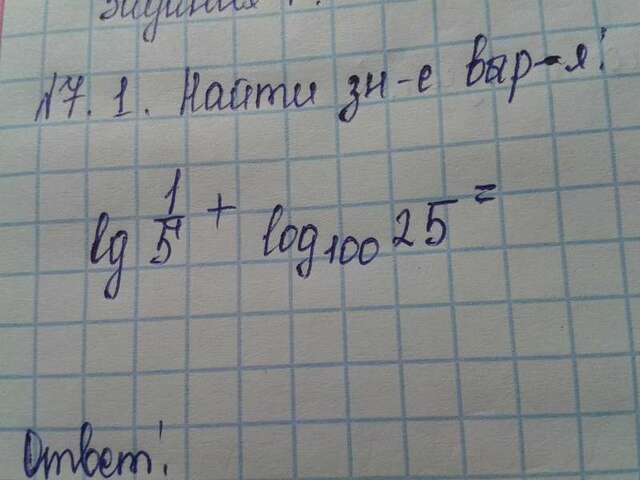 №7.1. Найти зн-е выр-я:
lg 1/5 + log₁₀₀ 25 =
Ответ: